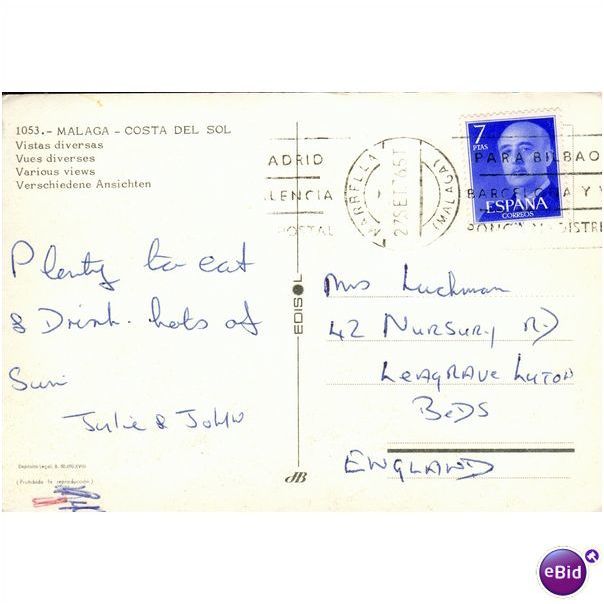 1053.- MALAGA - COSTA DEL SOL
Vistas diversas
Vues diverses
Various views
Verschiedene Ansichten
ADRID
ALENCIA
POSTAL
MARBELLA
27 SET 65
(MALAGA)
PARA BILBAO
BARCELONA Y V
PONGA DISTRI
7
PTAS
ESPAÑA
CORREOS
Plenty to eat
& Drink. lots of
Sun
Julie & John
EDISOL
Mrs Luckman
42 NURSURY RD
LEAGRAVE LUTON
BEDS
ENGLAND
(Prohibida la reproducción)
eBid